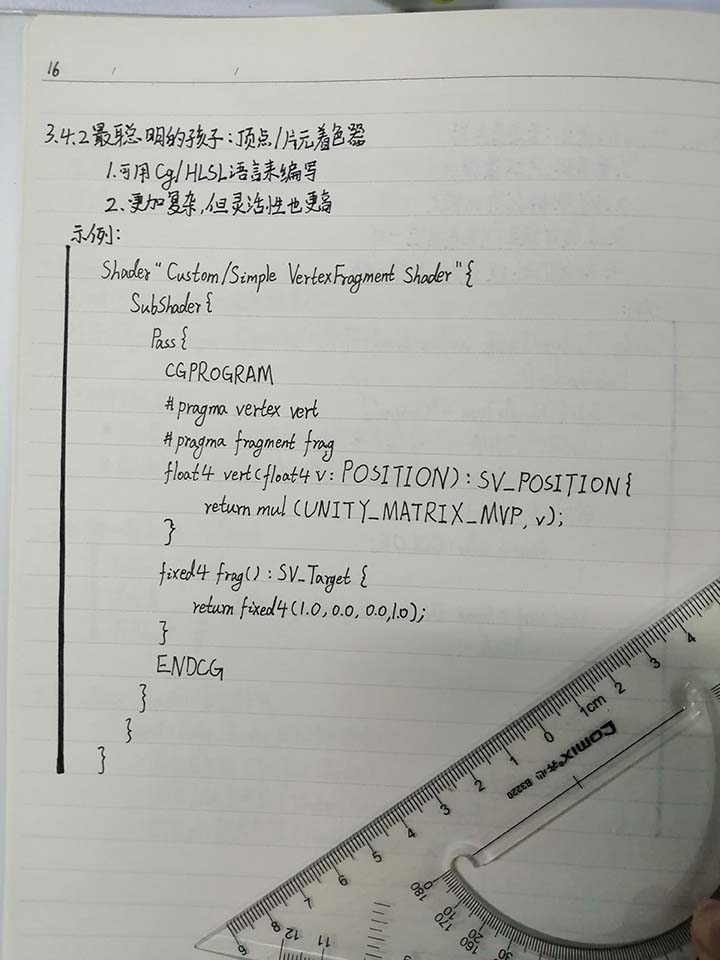 16 / /
3.4.2 最聪明的孩子:顶点/片元着色器
1.可用Cg/HLSL语言来编写
2.更加复杂,但灵活性也更高
示例:
Shader "Custom/Simple VertexFragment Shader"{
SubShader{
Pass{
CGPROGRAM
#pragma vertex vert
#pragma fragment frag
float4 vert(float4 v: POSITION): SV_POSITION{
return mul (UNITY_MATRIX_MVP, v);
}
fixed4 frag(): SV_Target {
return fixed4(1.0, 0.0, 0.0, 1.0);
}
ENDCG
}
}
}
6 8 7 6 5 4 3 2 1 0 1cm 2 3 4
Comix 齐心 B3220
12 11
180 170 160
0 10 20 30